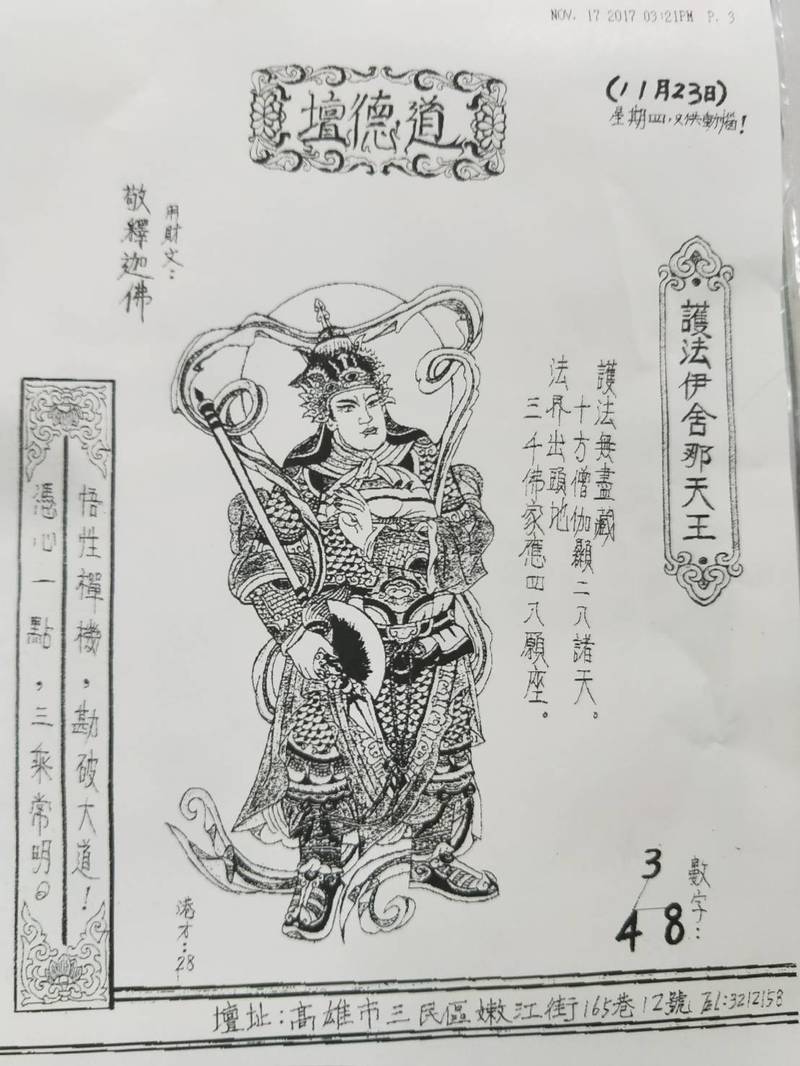 NOV. 17 2017 03:21PM P. 3
道德壇
(11月23日)
星期四,只供動惱!
護法伊舍那天王
護法無盡藏
十方僧伽顯二八諸天。
法界出頭地
三千佛家應四八願座。
用財文:
敬釋迦佛
悟性禪機,勘破大道!
憑心一點,三乘常明。
港才:28
數字:
3
4 8
壇址:高雄市三民區嫩江街165巷12號 TEL:3212158